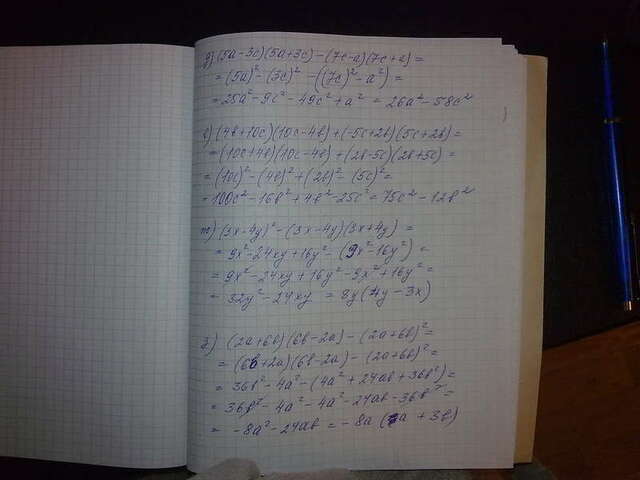 д) (5a-3c)(5a+3c)-(7c-a)(7c+a)=
= (5a)²-(3c)²-((7c)²-a²)=
= 25a²-9c²-49c²+a² = 26a²-58c²
е) (4b+10c)(10c-4b)+(-5c+2b)(5c+2b)=
= (10c+4b)(10c-4b)+(2b-5c)(2b+5c)=
= (10c)²-(4b)²+(2b)²-(5c)²=
= 100c²-16b²+4b²-25c²=75c²-12b²
ж) (3x-4y)²-(3x-4y)(3x+4y)=
= 9x²-24xy+16y²-(9x²-16y²)=
= 9x²-24xy+16y²-9x²+16y²=
= 32y²-24xy = 8y(4y-3x)
з) (2a+6b)(6b-2a)-(2a+6b)²=
= (6b+2a)(6b-2a)-(2a+6b)²=
= 36b²-4a²-(4a²+24ab+36b²)=
= 36b²-4a²-4a²-24ab-36b²=
= -8a²-24ab = -8a(a+3b)